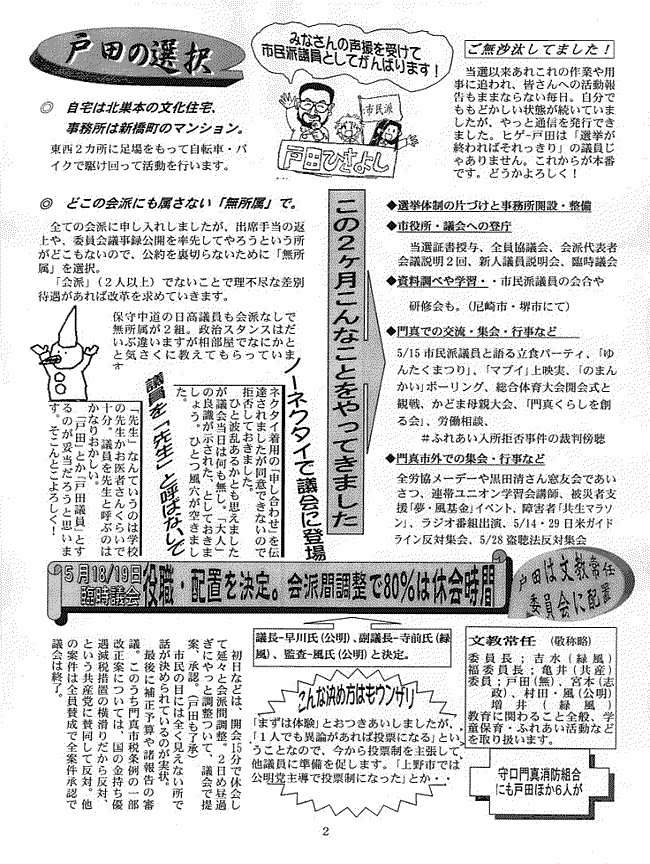 戸田の選択
みなさんの声援を受けて
市民派議員としてがんばります！
市民派
戸田ひさよし
ご無沙汰してました！
当選以来あれこれの作業や用
事に追われ、皆さんへの活動報
告もままならない毎日。自分で
ももどかしい状態が続いていま
したが、やっと通信を発行でき
ました。ヒゲ-戸田は「選挙が
終わればそれっきり」の議員じ
ゃありません。これからが本番
です。どうかよろしく！
◎ 自宅は北巣本の文化住宅、
事務所は新橋町のマンション。
東西２カ所に足場をもって自転車・バ
イクで駆け回って活動を行います。
◎ どこの会派にも属さない「無所属」で。
全ての会派に申し入れしましたが、出席手当の返
上や、委員会議事録公開を率先してやろうという所
がどこもないので、公約を裏切らないために「無所
属」を選択。
「会派」（２人以上）でないことで理不尽な差別
待遇があれば改革を求めていきます。
保守中道の日高議員も会派なしで
無所属が２組。政治スタンスはだ
いぶ違いますが相部屋でなにかと
と気さくに教えてもらっていま
す
この２ヶ月こんなことをやってきました
◆選挙体制の片づけと事務所開設・整備
◆市役所・議会への登庁
当選証書授与、全員協議会、会派代表者
会議説明２回、新人議員説明会、臨時議会
◆資料調べや学習・・市民派議員の会合や
研修会も。（尼崎市・堺市にて）
◆門真での交流・集会・行事など
5/15 市民派議員と語る立食パーティ、「ゆ
んたくまつり」、「マブイ」上映実、「のまん
かい」ボーリング、総合体育大会開会式と
観戦、かどま母親大会、「門真くらしを創
る会」、労働相談、
＃ふれあい入所拒否事件の裁判傍聴
◆門真市外での集会・行事など
全労協メーデーや黒田清さん窓友会であい
さつ、連帯ユニオン学習会講師、被災者支
援「夢・風基金」イベント、障害者「共生マラソ
ン」、ラジオ番組出演、5/14・29 日米ガイド
ライン反対集会、5/28 盗聴法反対集会
ノーネクタイで議会に登場
ネクタイ着用の「申し合わせ」を伝
達されましたが同意できないので
拒否しておきました。
ひと波乱あるかとも思えました
が議会当日は何も無し。「大人」
の良識が示された、としておきま
しょう。ひとつ風穴が空きまし
た。
議員を「先生」と呼ばないで
「先生」なんていうのは学校
の先生かお医者さんくらいで
十分。議員を先生と呼ぶのは
かなりおかしい。
「戸田」とか「戸田議員」とす
るのが妥当だろうと思いま
す。そこんとこよろしく！
５月18/19日
臨時議会
役職・配置を決定。会派間調整で80%は休会時間
戸田は文教常任
委員会に配置
初日などは、開会15分で休会し
て延々と会派間調整。２日め昼過
ぎにやっと調整ついて、議会で提
案、承認。（戸田も了承）
市民の目には全く見えない所で
話が決められているのが実状。
最後に補正予算や諸報告の審
議。このうち門真市税条例の一部
改正案については、国の金持ち優
遇減税措置の横滑りだから反対、
という共産党に賛同して反対。他
の案件は全員賛成で全案件承認で
議会は終了。
議長－早川氏（公明）、副議長－寺前氏（緑
風）、監査－風氏（公明）と決定。
こんな決め方はもウンザリ
「まずは体験」とおつきあいしましたが、
「１人でも異論があれば投票になる」とい
うことなので、今から投票制を主張して
他議員に準備を促します。「上野市では
公明党主導で投票制になった」とか・・
文教常任 （敬称略）
委員長；吉水（緑風）
福委員長；亀井（共産）
委員；戸田（無）、宮本（志
政）、村田・風（公明）
増井（緑風）
教育に関わること全般、学
童保育・ふれあい活動など
を取り扱います。
守口門真消防組合
にも戸田ほか６人が
2